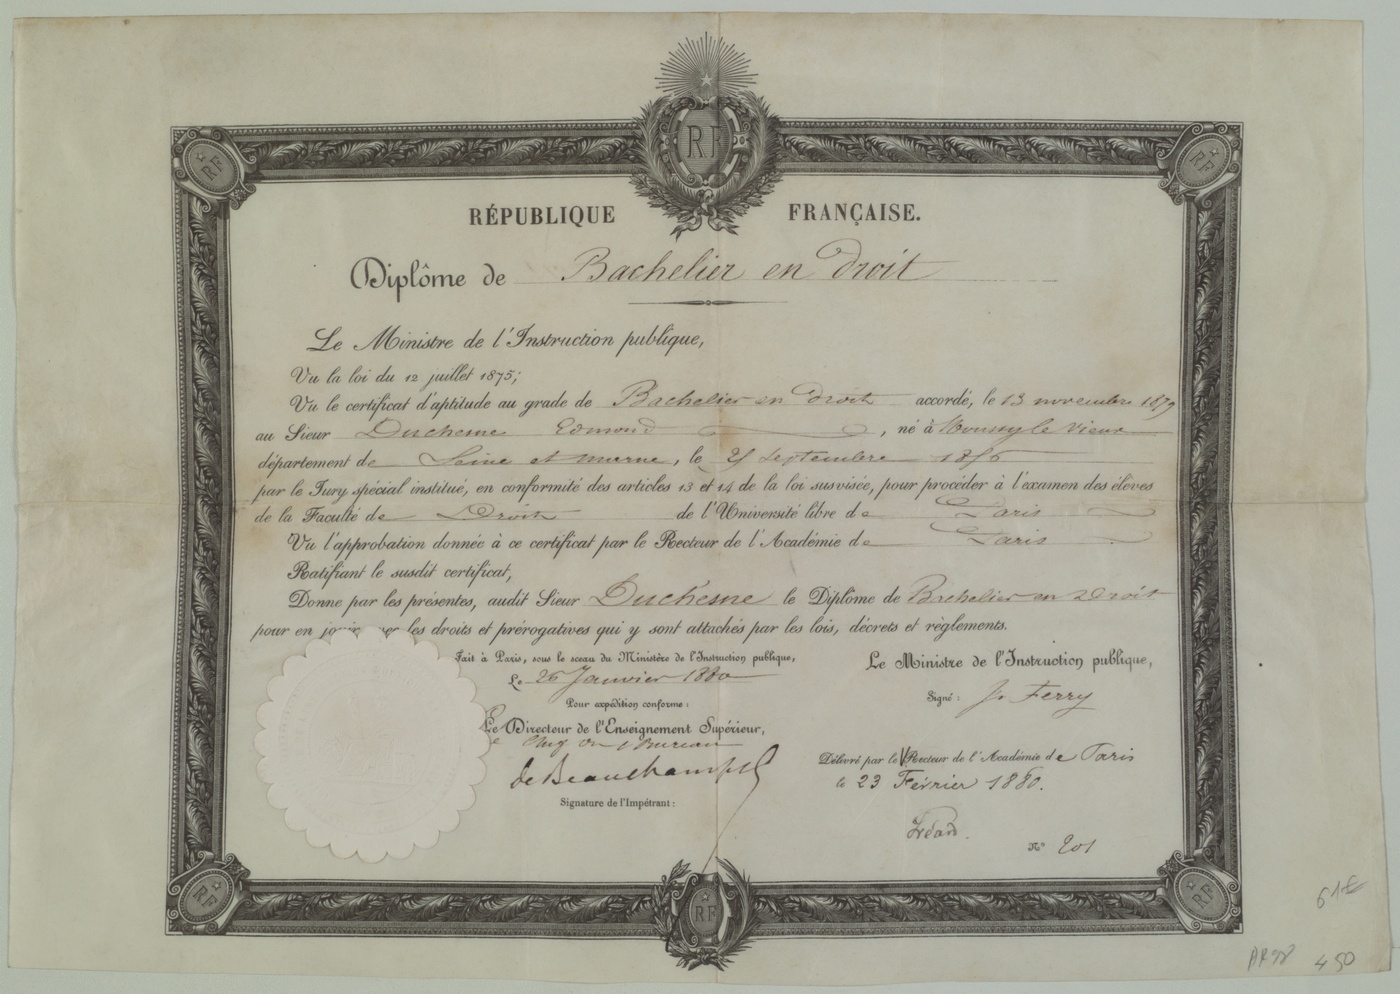 RF
RF
RF
RÉPUBLIQUE FRANÇAISE.
Diplôme de Bachelier en Droit
Le Ministre de l'Instruction publique,
Vu la loi du 12 juillet 1875;
Vu le certificat d'aptitude au grade de Bachelier en Droit accordé, le 13 novembre 1879
au Sieur Duchesne Edmond, né à Moussy le Vieux
département de Seine et Marne, le septembre 1856
par le Jury spécial institué, en conformité des articles 13 et 14 de la loi susvisée, pour procéder à l'examen des élèves
de la Faculté de Droit de l'Université libre de Paris
Vu l'approbation donnée à ce certificat par le Recteur de l'Académie de Paris
Ratifiant le susdit certificat,
Donne par les présentes, audit Sieur Duchesne le Diplôme de Bachelier en Droit
pour en jouir avec les droits et prérogatives qui y sont attachés par les lois, décrets et règlements.
Fait à Paris, sous le sceau du Ministère de l'Instruction publique,
Le 26 Janvier 1880
Pour expédition conforme:
Le Directeur de l'Enseignement Supérieur,
Bureau
de Beauchamp
Signature de l'Impétrant:
Le Ministre de l'Instruction publique,
Signé: J. Ferry
Délivré par le Recteur de l'Académie de Paris
le 23 Février 1880.
N° 201
RF
RF
RF
450